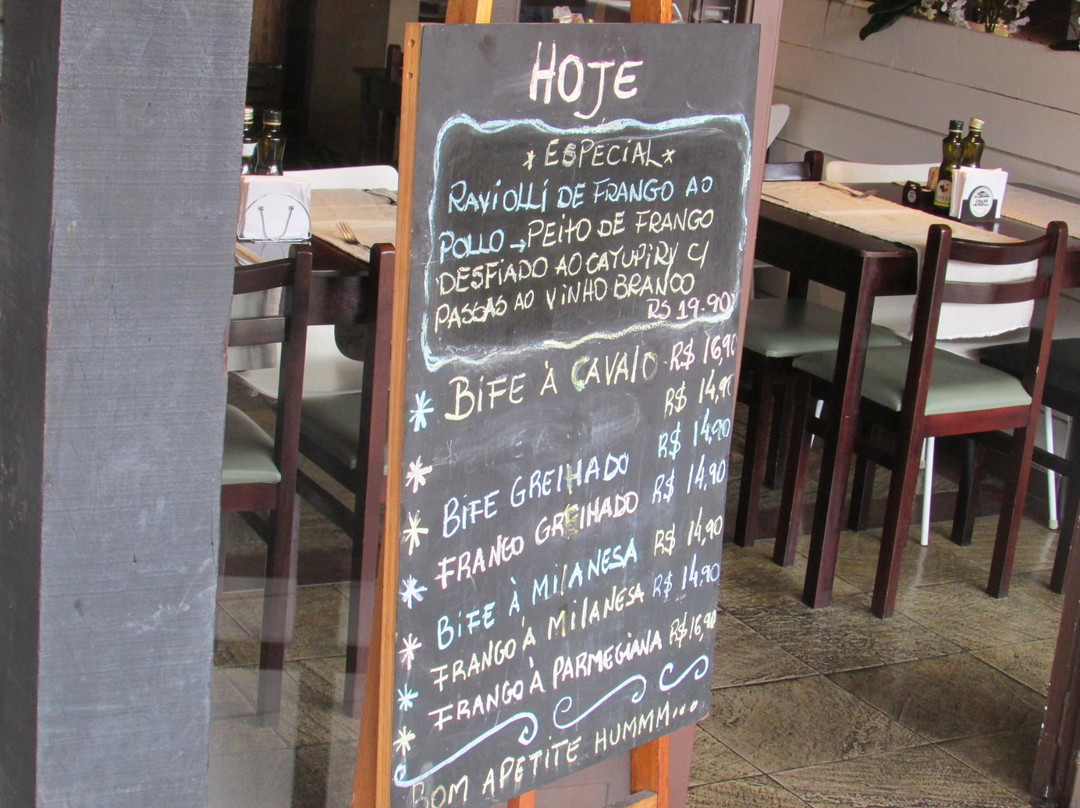 HOJE
* ESPECIAL *
RAVIOLLI DE FRANGO AO
POLLO → PEITO DE FRANGO
DESFIADO AO CATUPIRY C/
PASSAS AO VINHO BRANCO
R$ 19.90
* BIFE À CAVALO - R$ 16,90
* R$ 14,90
* BIFE GRELHADO R$ 14,90
* FRANGO GRELHADO R$ 14,90
* BIFE À MILANESA R$ 14,90
* FRANGO À MILANESA R$ 14,90
* FRANGO À PARMEGIANA R$ 16,90
BOM APETITE HUMMM...